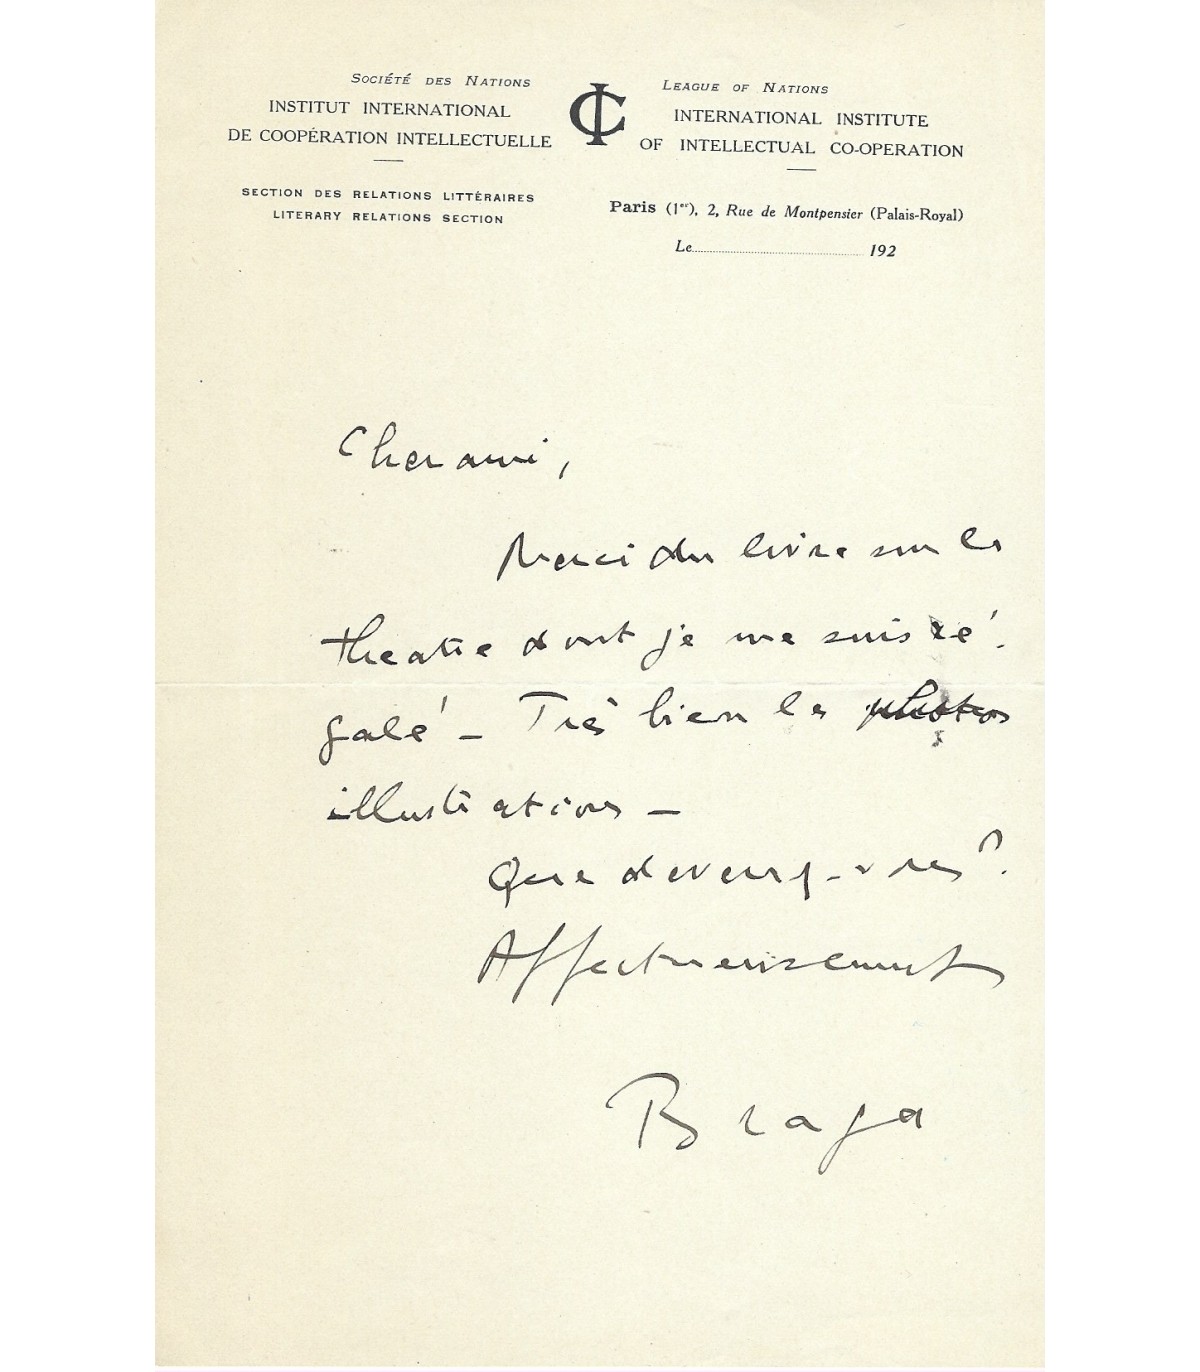 SOCIÉTÉ DES NATIONS
INSTITUT INTERNATIONAL
DE COOPÉRATION INTELLECTUELLE
SECTION DES RELATIONS LITTÉRAIRES
LITERARY RELATIONS SECTION
IC
LEAGUE OF NATIONS
INTERNATIONAL INSTITUTE
OF INTELLECTUAL CO-OPERATION
Paris (1er), 2, Rue de Montpensier (Palais-Royal)
Le 192
Cher ami,
Merci du livre sur le
theatre dont je me suis ré-
galé – Très bien les photos
illustrations –
Que devenez-vous ?
Affectueusement
Braga